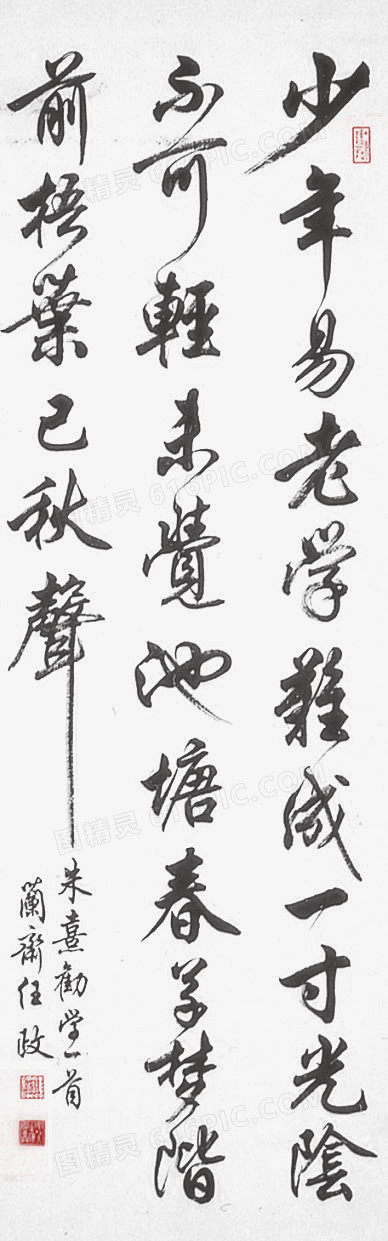 少年易老學難成一寸光陰
不可輕未覺池塘春草夢階
前梧葉已秋聲
朱熹勸学一首
蘭齋任政
图精灵 616PIC.COM